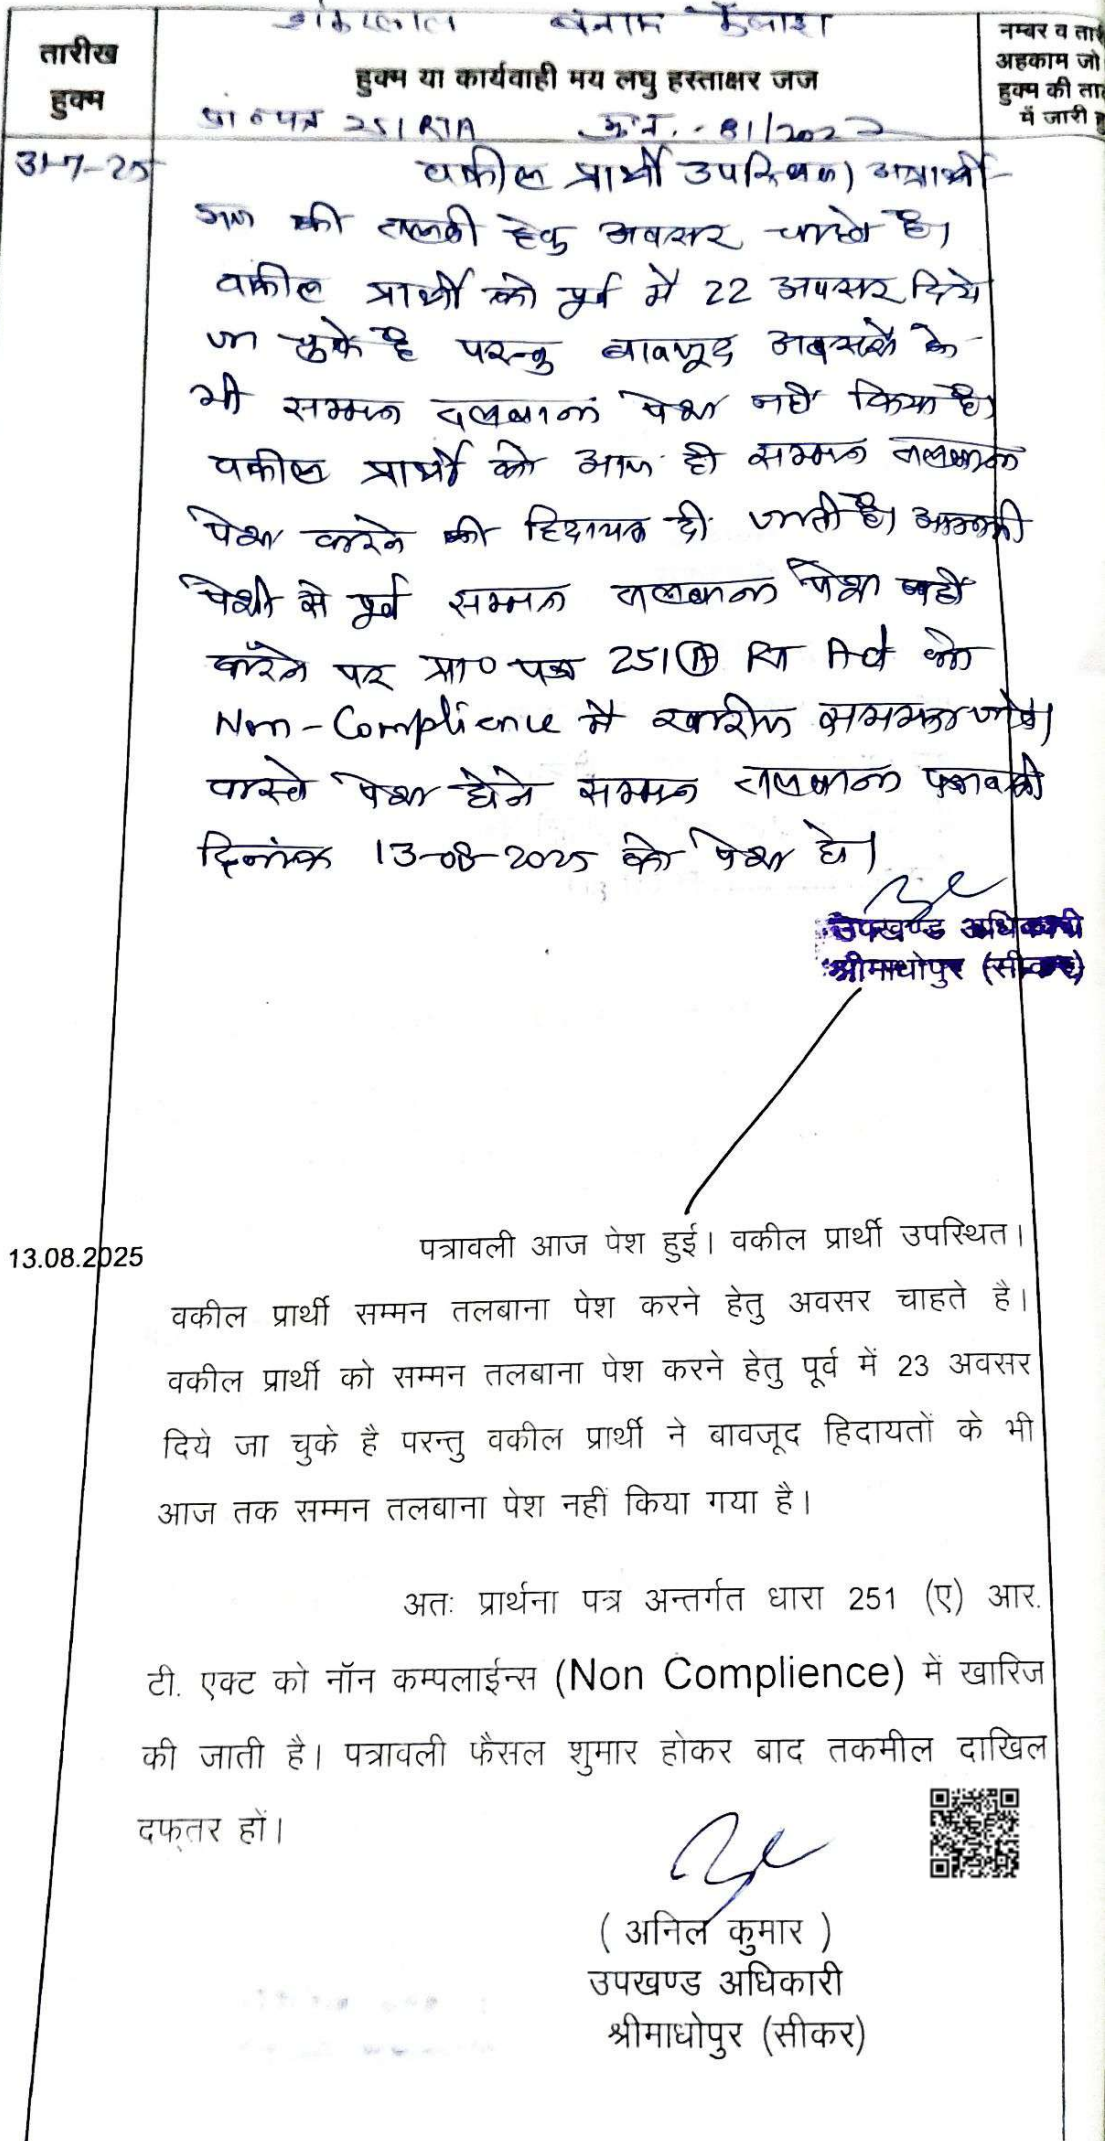 शंकरलाल बनाम कैलाश
तारीख
हुक्म
हुक्म या कार्यवाही मय लघु हस्ताक्षर जज
नम्बर व तार
अहकाम जो
हुक्म की ता
में जारी हु
प्रा०पत्र 251 RTA मु.नं. - 81/2022
31-7-25
वकील प्रार्थी उपस्थित। अप्रार्थी-
गण की तलबी हेतु अवसर चाहते है।
वकील प्रार्थी को पूर्व में 22 अवसर दिये
जा चुके है परन्तु बावजूद अवसरों के
भी सम्मन तलबाना पेश नहीं किया है।
वकील प्रार्थी को आज ही सम्मन तलबाना
पेश करने की हिदायत दी जाती है। आगामी
पेशी से पूर्व सम्मन तलबाना पेश नहीं
करने पर प्रा० पत्र 251(A) RT Act को
Non-Complience में खारीज समझा जावे।
वास्ते पेश होने सम्मन तलबाना पत्रावली
दिनांक 13-08-2025 को पेश हो।
उपखण्ड अधिकारी
श्रीमाधोपुर (सीकर)
13.08.2025
पत्रावली आज पेश हुई। वकील प्रार्थी उपस्थित।
वकील प्रार्थी सम्मन तलबाना पेश करने हेतु अवसर चाहते है।
वकील प्रार्थी को सम्मन तलबाना पेश करने हेतु पूर्व में 23 अवसर
दिये जा चुके है परन्तु वकील प्रार्थी ने बावजूद हिदायतों के भी
आज तक सम्मन तलबाना पेश नहीं किया गया है।
अतः प्रार्थना पत्र अन्तर्गत धारा 251 (ए) आर.
टी. एक्ट को नॉन कम्पलाईन्स (Non Complience) में खारिज
की जाती है। पत्रावली फैसल शुमार होकर बाद तकमील दाखिल
दफ्तर हों।
( अनिल कुमार )
उपखण्ड अधिकारी
श्रीमाधोपुर (सीकर)